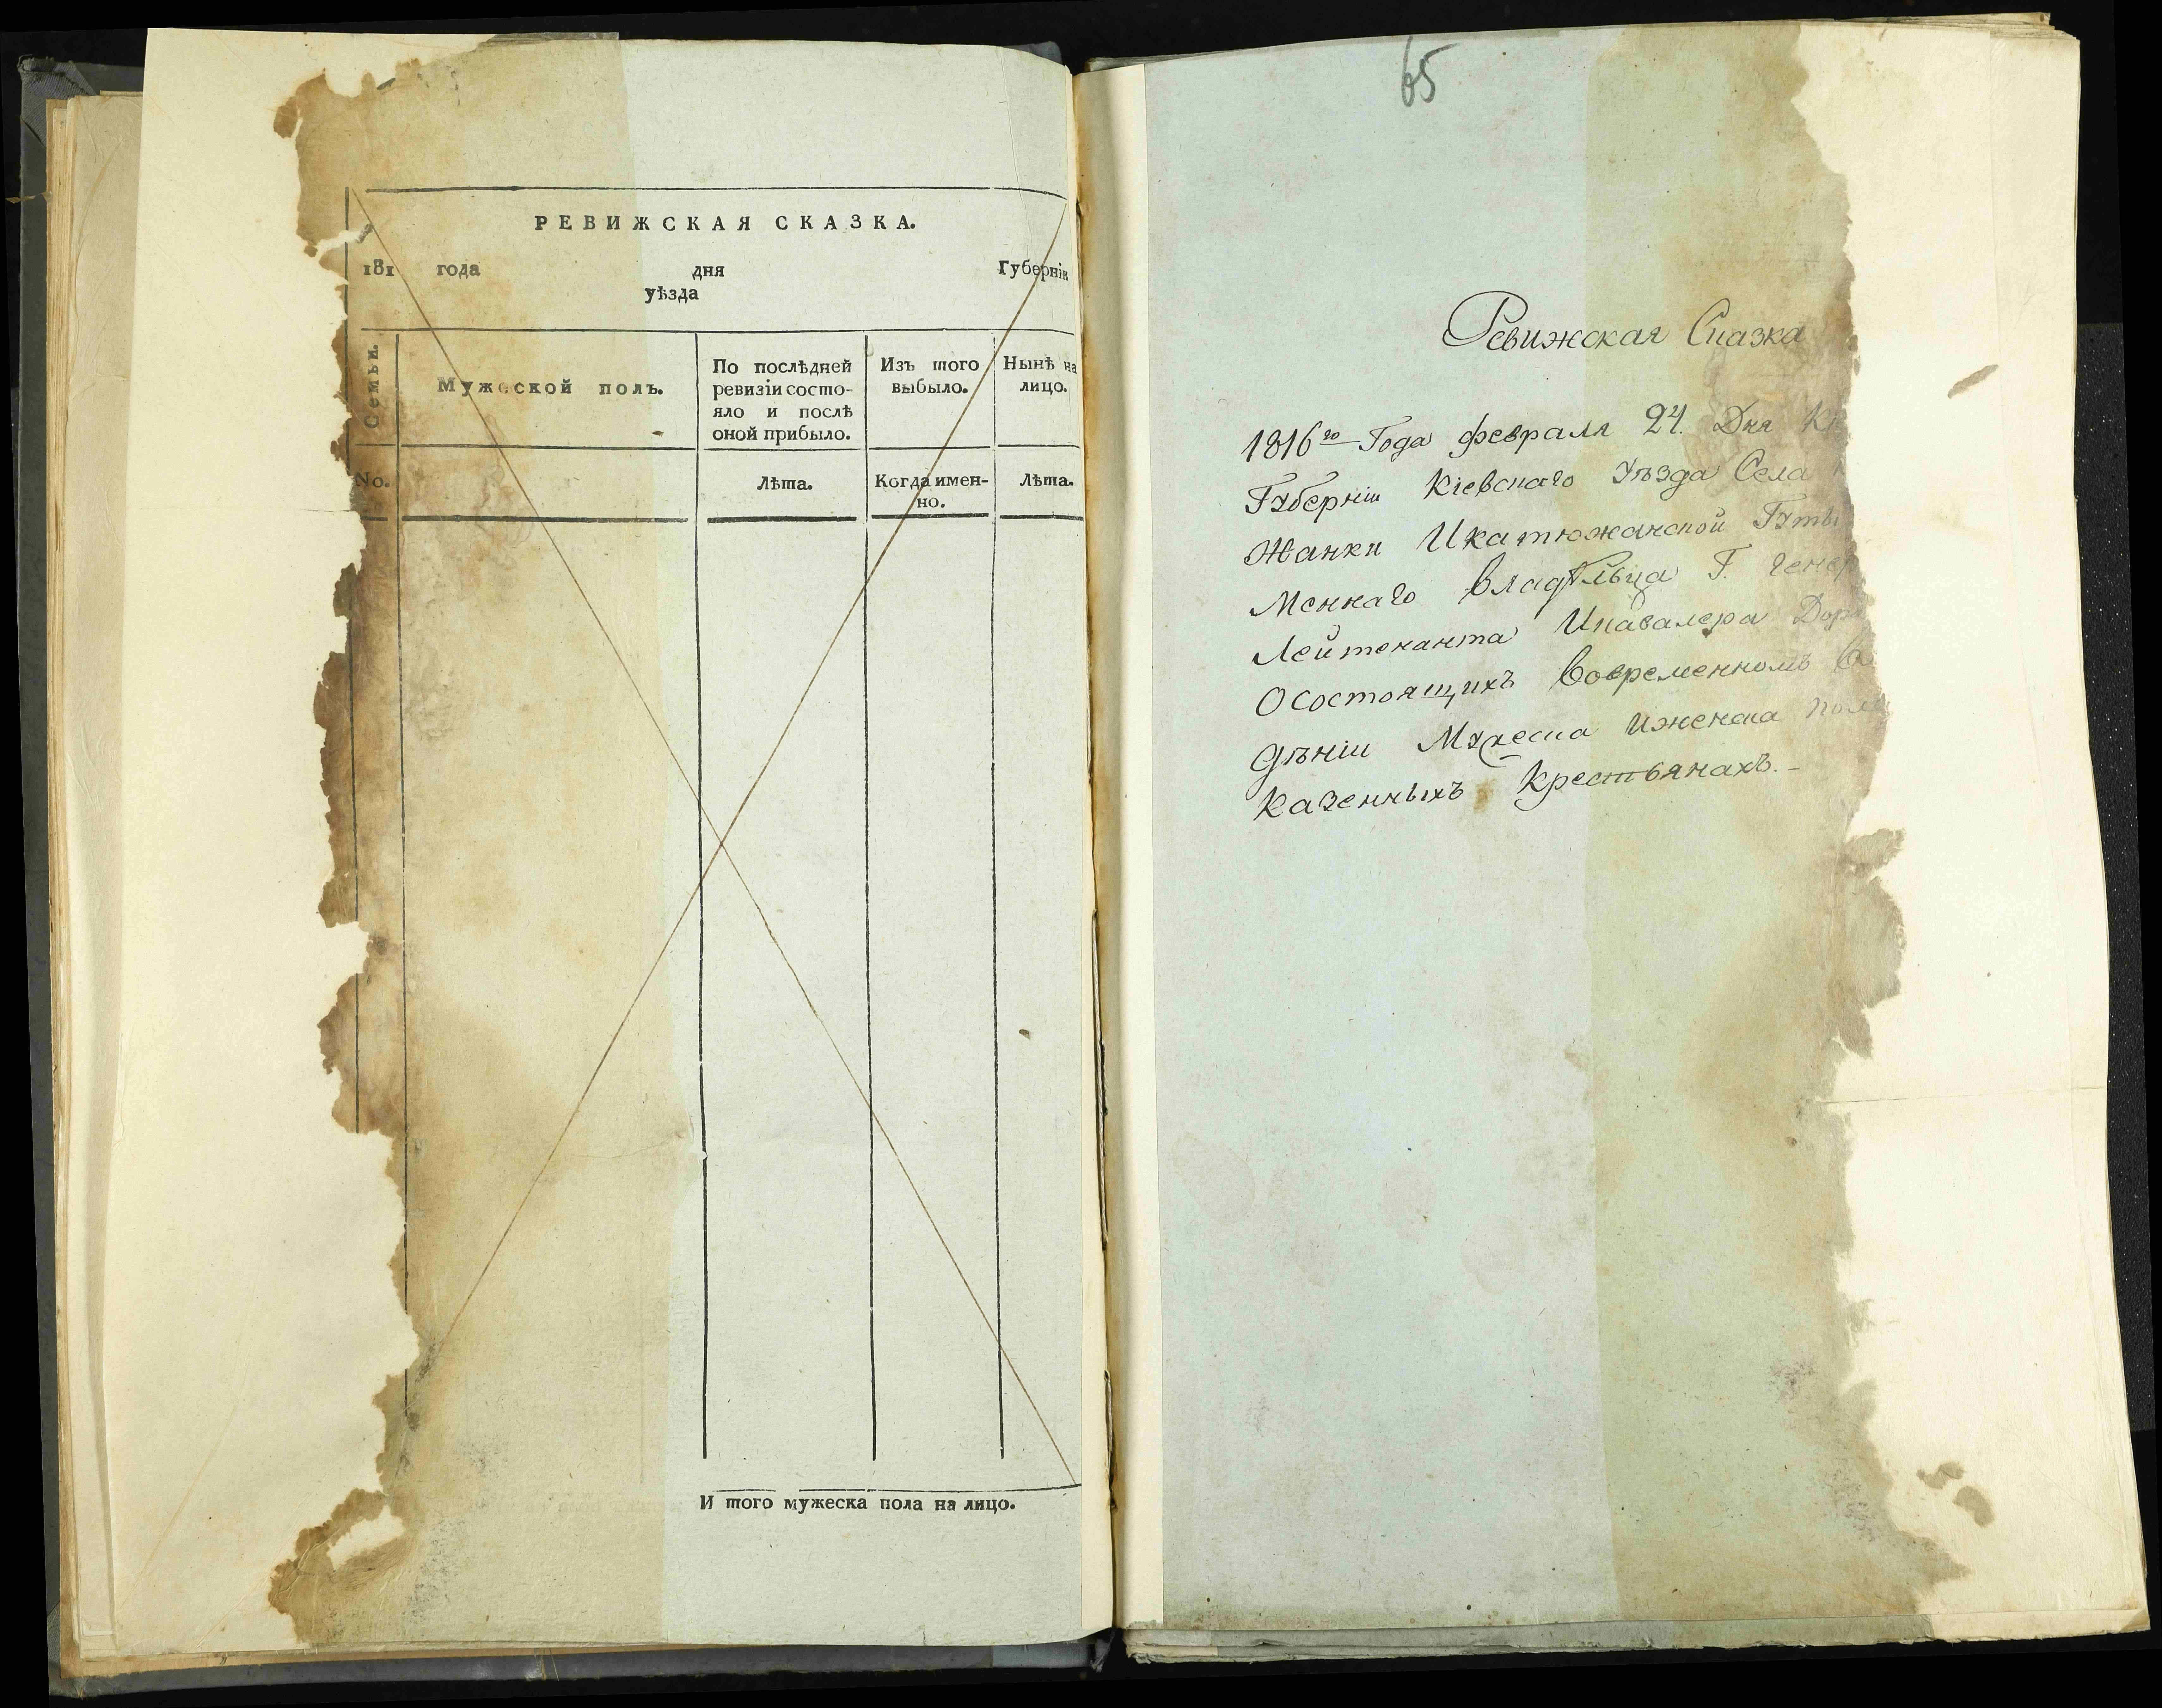 РЕВИЖСКАЯ СКАЗКА.
181 года дня Губерніи
уѣзда
Семьи.
Мужеской полъ.
По послѣдней
ревизіи состо-
яло и послѣ
оной прибыло.
Изъ того
выбыло.
Нынѣ на
лицо.
No.
Лѣта.
Когда имен-
но.
Лѣта.
И того мужеска пола на лицо.
65
Ревижская Сказка
1816го Года февраля 24. Дня
Губерніи Кіевскаго Уѣзда Села
Жанки Икатюжанской Гуты
Меннаго владѣльца Г. Генер
Лейтенанта Икавалера
Осостоящихъ вовременномъ
дѣніи Мужеска иженска пола
Казенныхъ Крестьянахъ.-